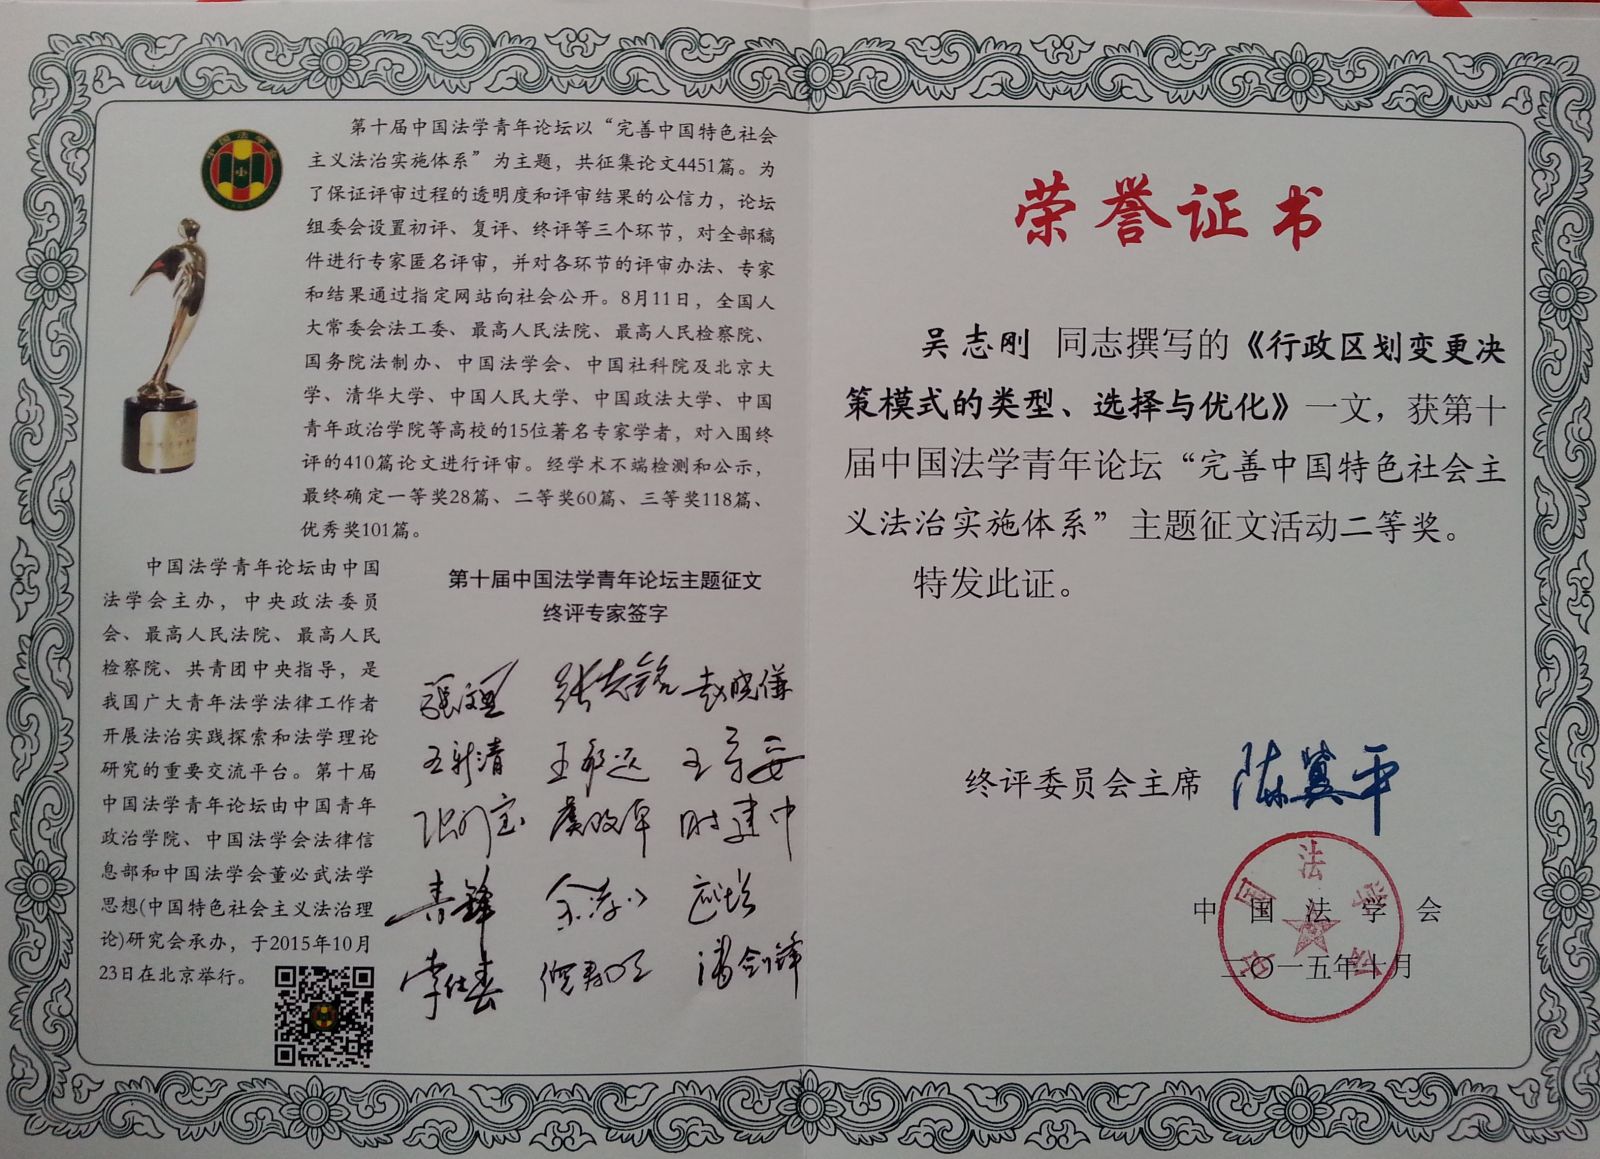 第十届中国法学青年论坛以“完善中国特色社会
主义法治实施体系”为主题，共征集论文4451篇。为
了保证评审过程的透明度和评审结果的公信力，论坛
组委会设置初评、复评、终评等三个环节，对全部稿
件进行专家匿名评审，并对各环节的评审办法、专家
和结果通过指定网站向社会公开。8月11日，全国人
大常委会法工委、最高人民法院、最高人民检察院、
国务院法制办、中国法学会、中国社科院及北京大
学、清华大学、中国人民大学、中国政法大学、中国
青年政治学院等高校的15位著名专家学者，对入围终
评的410篇论文进行评审。经学术不端检测和公示，
最终确定一等奖28篇、二等奖60篇、三等奖118篇、
优秀奖101篇。
中国法学青年论坛由中国
法学会主办，中央政法委员
会、最高人民法院、最高人民
检察院、共青团中央指导，是
我国广大青年法学法律工作者
开展法治实践探索和法学理论
研究的重要交流平台。第十届
中国法学青年论坛由中国青年
政治学院、中国法学会法律信
息部和中国法学会董必武法学
思想(中国特色社会主义法治理
论)研究会承办，于2015年10月
23日在北京举行。
第十届中国法学青年论坛主题征文
终评专家签字
张志铭
王新清
时建中
青锋
李仕春
潘剑锋
荣誉证书
吴志刚 同志撰写的《行政区划变更决
策模式的类型、选择与优化》一文，获第十
届中国法学青年论坛“完善中国特色社会主
义法治实施体系”主题征文活动二等奖。
特发此证。
终评委员会主席 陈冀平
中国法学会
二〇一五年十月
中国法学会